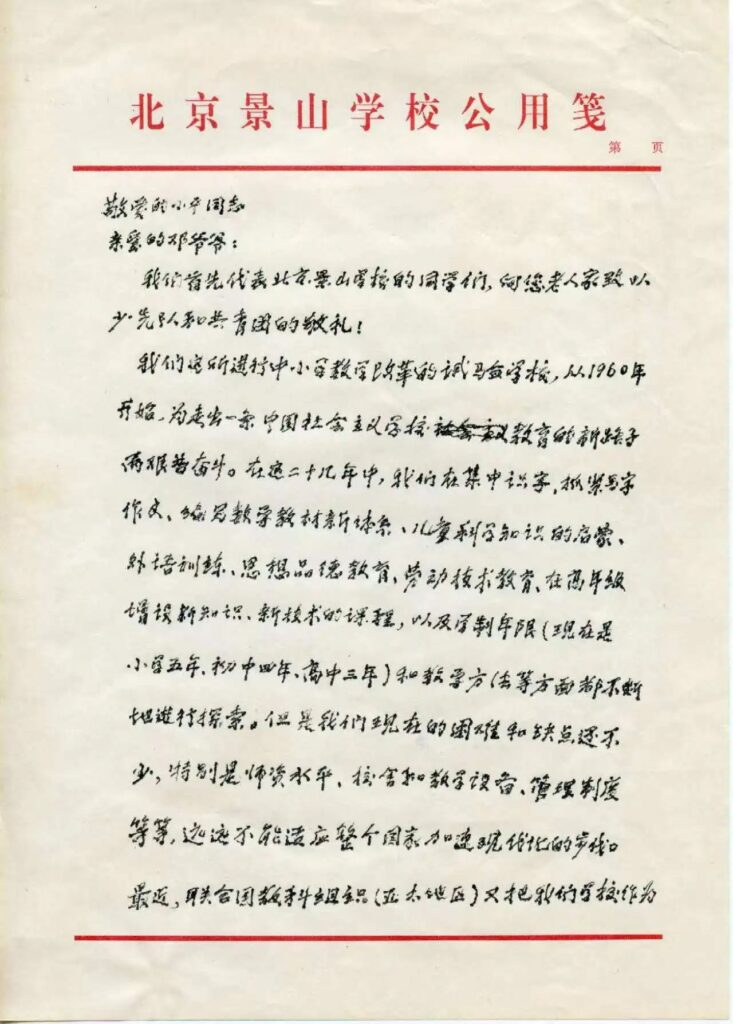 北京景山学校公用笺
第 页
敬爱的小平同志
亲爱的邓爷爷：
我们首先代表北京景山学校的同学们，向您老人家致以
少先队和共青团的敬礼！
我们这所进行中小学教学改革的试马益学校，从1960年
开始，为走出一条中国社会主义学校社会主义教育的新路子
而艰苦奋斗。在这二十几年中，我们在集中识字、抓紧写字
作文、编写数学教材新体系、儿童科学知识的启蒙、
外语训练、思想品德教育、劳动技术教育、在高年级
增设新知识、新技术的课程，以及学制年限（现在是
小学五年、初中四年、高中三年）和教学方法等方面都不断
地进行探索。但是我们现在的困难和缺点还不
少，特别是师资水平、校舍和教学设备、管理制度
等等，远远不能适应整个国家加速现代化的步伐。
最近，联合国教科组织（亚太地区）又把我们学校作为